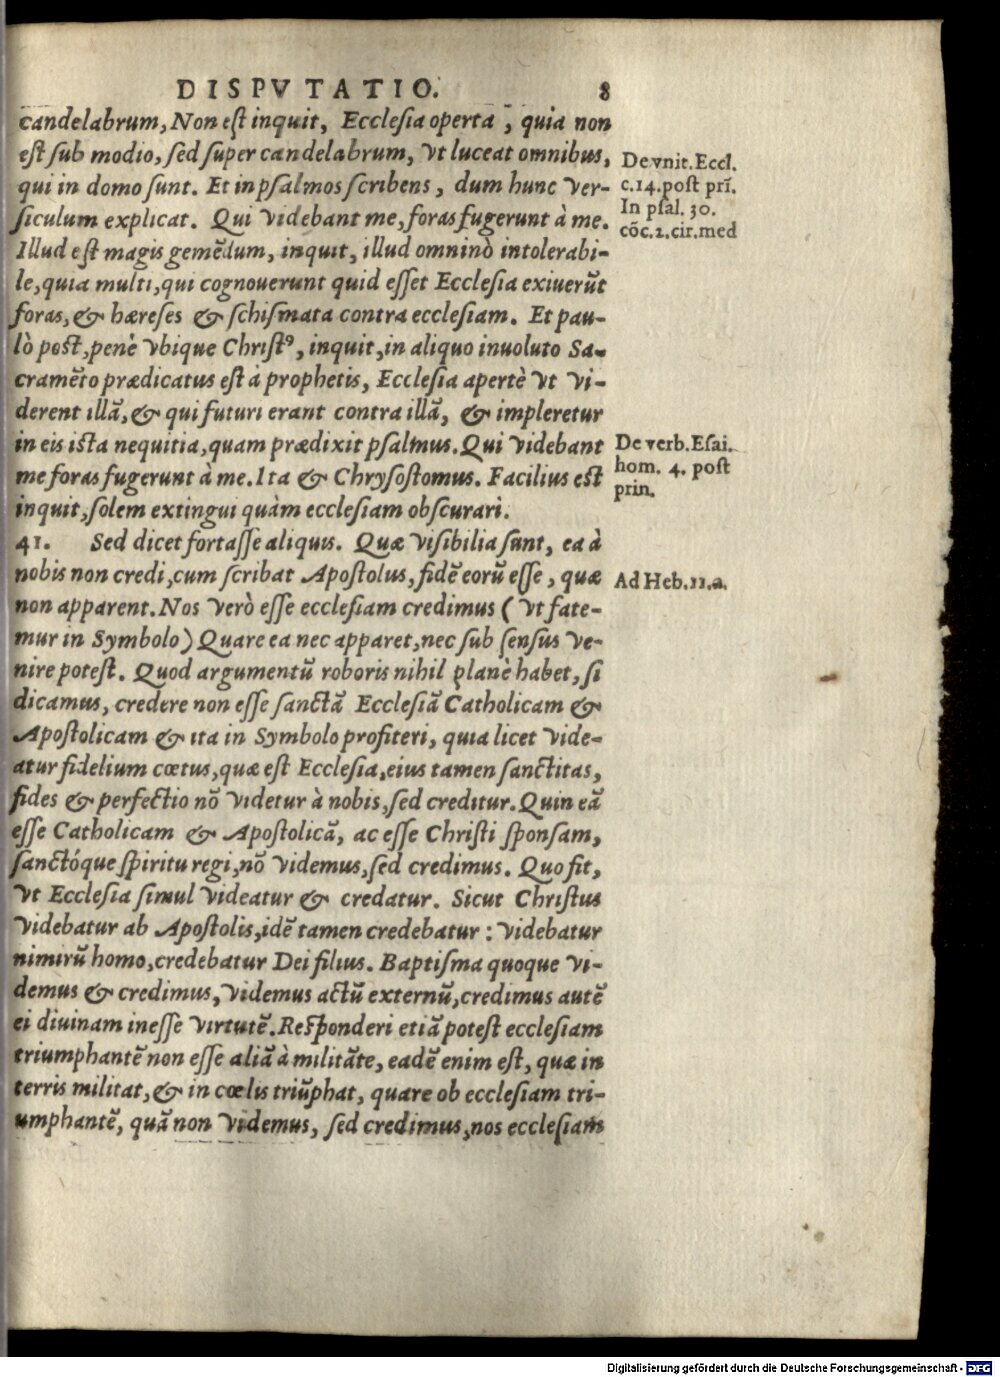 DISPVTATIO. 8
candelabrum, Non est inquit, Ecclesia operta, quia non
est sub modio, sed super candelabrum, vt luceat omnibus,
qui in domo sunt. Et in psalmos scribens, dum hunc ver-
siculum explicat. Qui videbant me, foras fugerunt à me.
Illud est magis gemẽdum, inquit, illud omninò intolerabi-
le, quia multi, qui cognouerunt quid esset Ecclesia exiuerũt
foras, & hæreses & schismata contra ecclesiam. Et pau-
lò post, penè vbique Christꝰ, inquit, in aliquo inuoluto Sa-
cramẽto prædicatus est à prophetis, Ecclesia apertè vt vi-
derent illã, & qui futuri erant contra illã, & impleretur
in eis ista nequitia, quam prædixit psalmus. Qui videbant
me foras fugerunt à me. Ita & Chrysostomus. Facilius est
inquit, solem extingui quàm ecclesiam obscurari.
De vnit. Eccl.
c. 14. post prĩ.
In psal. 30.
cõc. 2. cir. med
De verb. Esai.
hom. 4. post
prin.
41. Sed dicet fortasse aliquis. Quæ visibilia sunt, ea à
nobis non credi, cum scribat Apostolus, fidẽ eorũ esse, quæ
non apparent. Nos verò esse ecclesiam credimus (vt fate-
mur in Symbolo) Quare ea nec apparet, nec sub sensus ve-
nire potest. Quod argumentũ roboris nihil planè habet, si
dicamus, credere non esse sanctã Ecclesiã Catholicam &
Apostolicam & ita in Symbolo profiteri, quia licet vide-
atur fidelium cœtus, quæ est Ecclesia, eius tamen sanctitas,
fides & perfectio nõ videtur à nobis, sed creditur. Quin eã
esse Catholicam & Apostolicã, ac esse Christi sponsam,
sanctóque spiritu regi, nõ videmus, sed credimus. Quo fit,
vt Ecclesia simul videatur & credatur. Sicut Christus
videbatur ab Apostolis, idẽ tamen credebatur: videbatur
nimirũ homo, credebatur Dei filius. Baptisma quoque vi-
demus & credimus, videmus actũ externũ, credimus autẽ
ei diuinam inesse virtutẽ. Responderi etiã potest ecclesiam
triumphantẽ non esse aliã à militãte, eadẽ enim est, quæ in
terris militat, & in cœlis triũphat, quare ob ecclesiam tri-
umphantẽ, quã non videmus, sed credimus, nos ecclesiam
Ad Heb. 11. a.
Digitalisierung gefördert durch die Deutsche Forschungsgemeinschaft - DFG